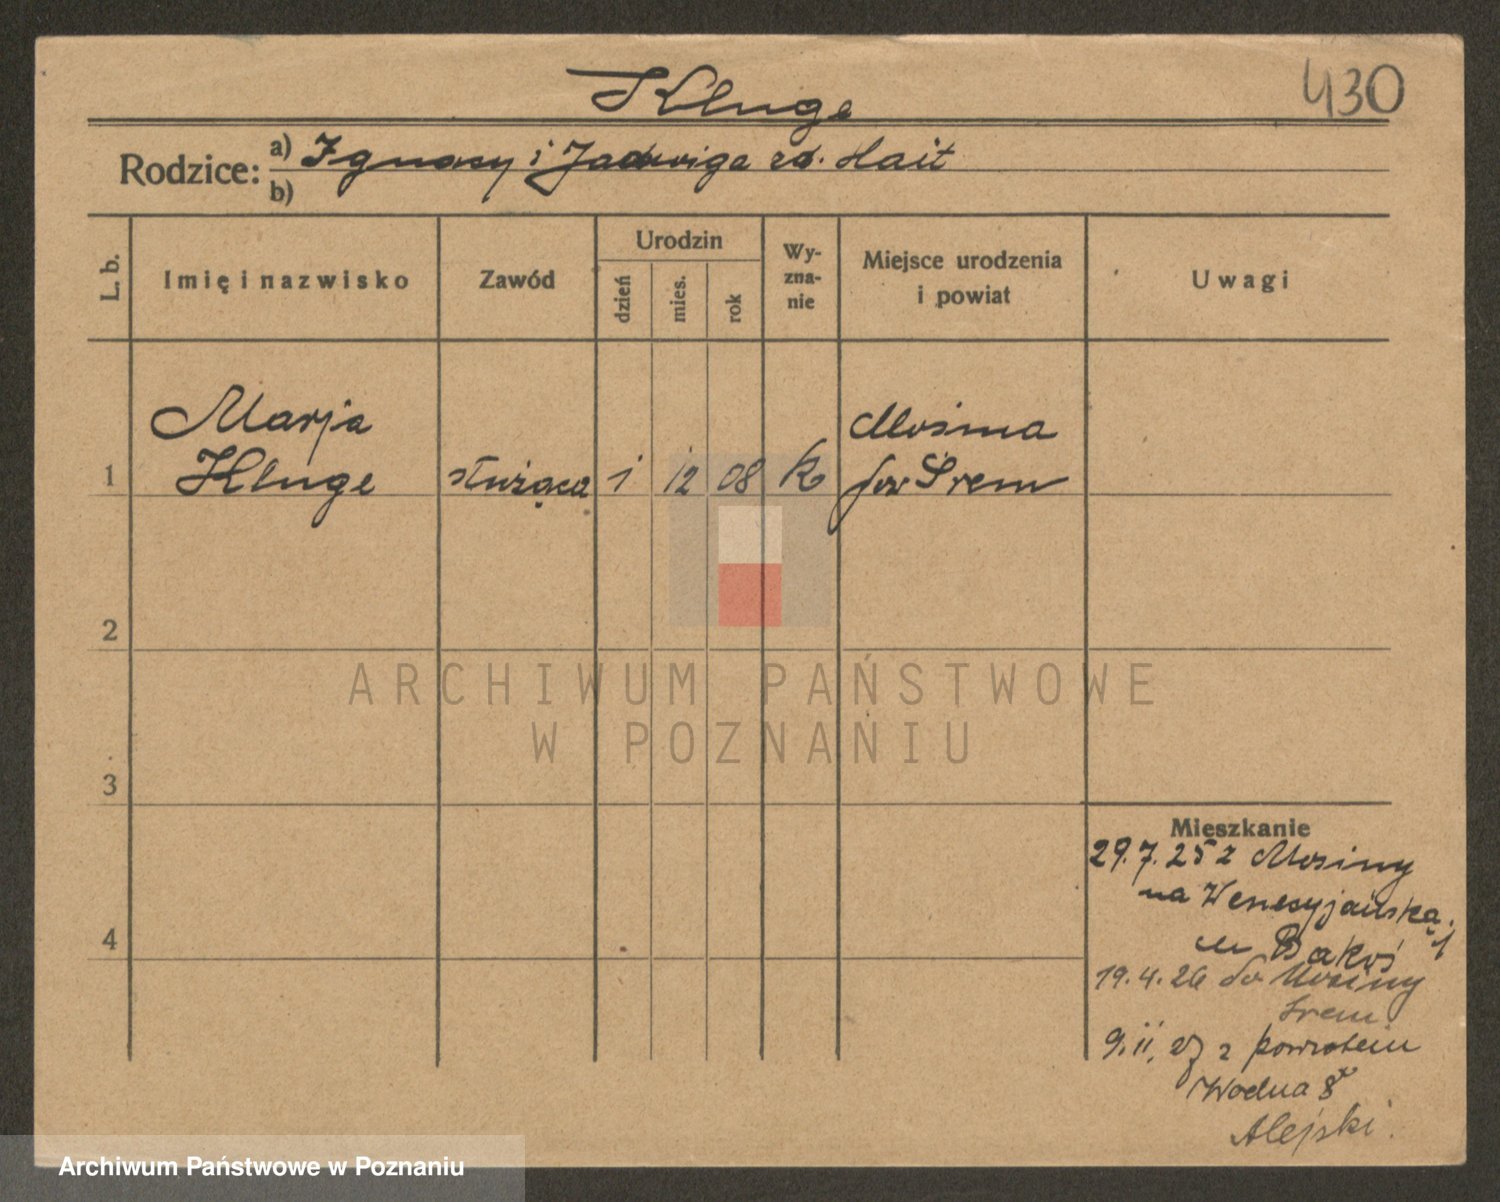 Kluge
430
Rodzice: a) Ignacy i Jadwiga zd. Hait
b)
L. b.
Imię i nazwisko
Zawód
Urodzin
dzień
mies.
rok
Wy-
zna-
nie
Miejsce urodzenia
i powiat
Uwagi
Marja
Kluge
służąca
1
12
08
k
Mosina
pow Śrem
1
2
3
4
ARCHIWUM PAŃSTWOWE
W POZNANIU
Mieszkanie
29.7.25 z Mosiny
na Wenecyjańską 1
u Bakoś
19.4.26 do Mosiny
Śrem
9.11.27 z powrotem
Wodna 8
Alejski.
Archiwum Państwowe w Poznaniu